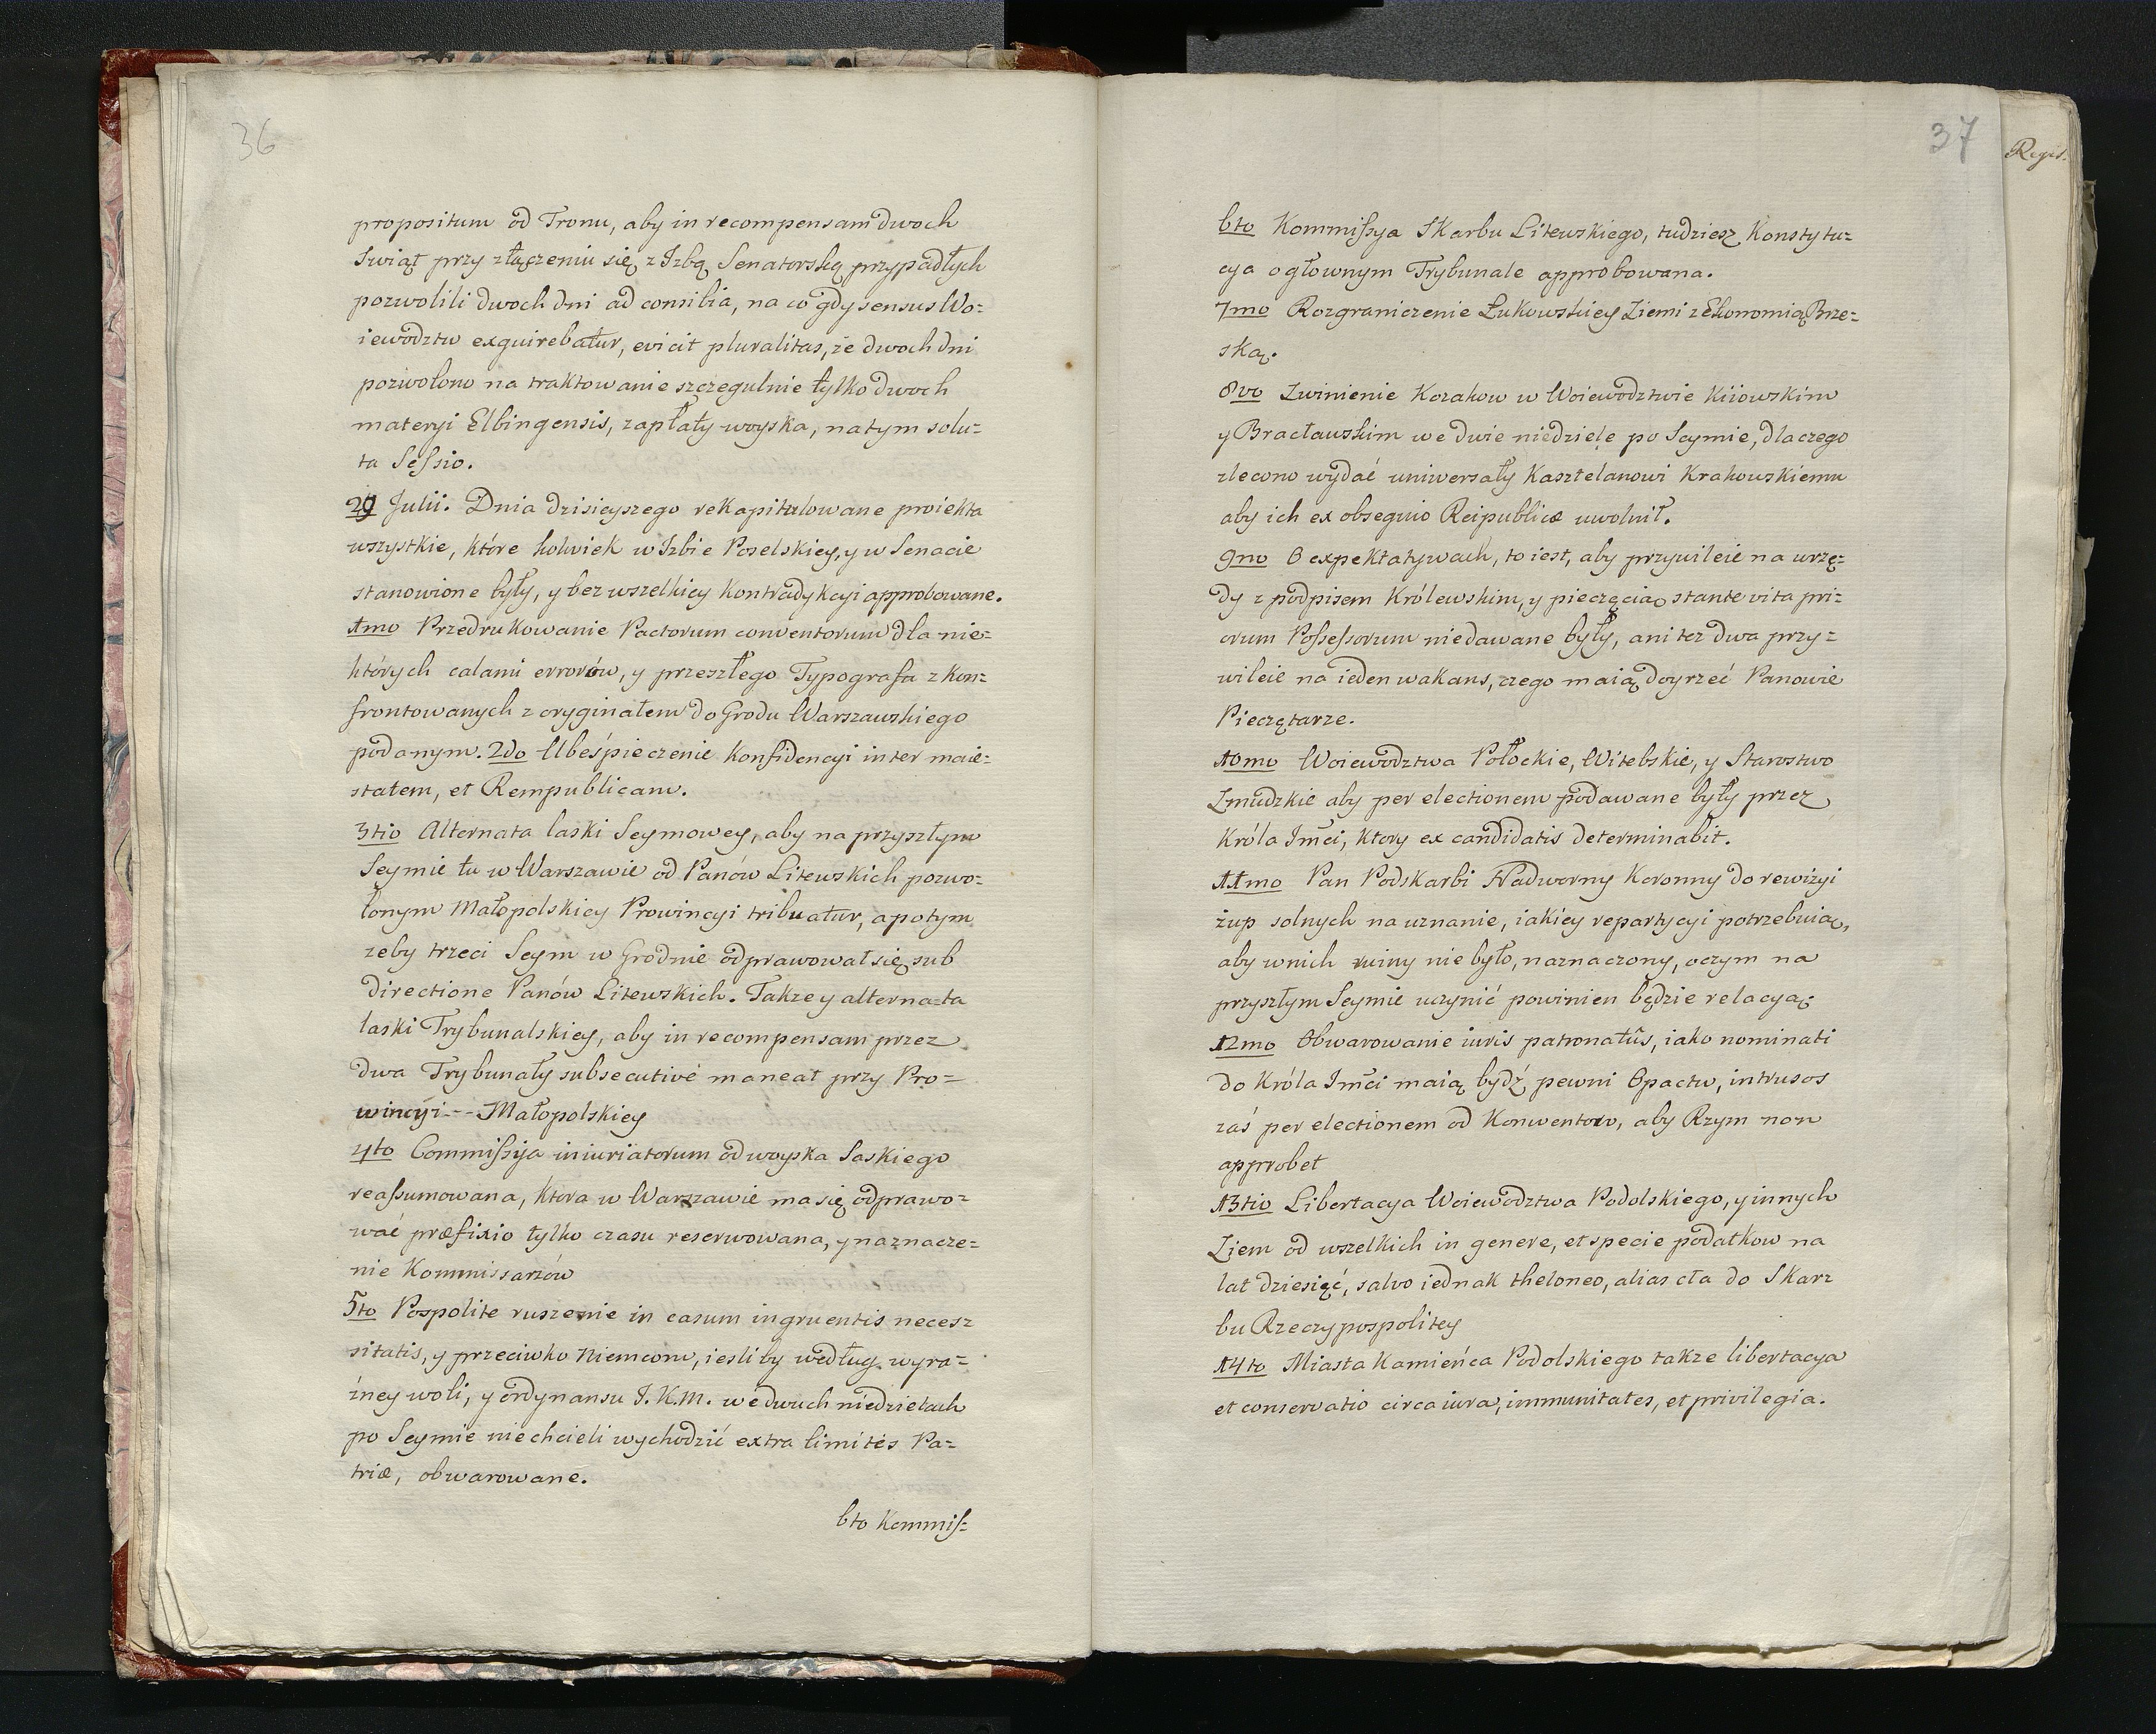 36
propositum od Tronu, aby in recompensam dwoch
Swiąt przy złączeniu się z Izbą Senatorską przypadłych
pozwolili dwoch dni ad consilia, na co gdy sensus Wo=
iewodztw exquirebatur, evicit pluralitas, że dwoch dni
pozwolono na traktowanie szczegulnie tylko dwoch
materyi Elbingensis, zapłaty woyska, na tym solu=
ta Sessio.
29 Julii. Dnia dzisieyszego rekapitulowane proiekta
wszystkie, które kolwiek w Izbie Poselskiey, y w Senacie
stanowione były, y bez wszelkiey Kontradykcyi approbowane.
1mo Przedrukowanie Pactorum conventorum dla nie=
których calami errorów, y przeszłego Typografa z kon=
frontowanych z oryginałem do Grodu Warszawskiego
podanym. 2do Ubeśpieczenie Konfidencyi inter maie=
statem, et Rempublicam.
3tio Alternata laski Seymowey, aby na przyszłym
Seymie tu w Warszawie od Panów Litewskich pozwo=
lonym Małopolskiey Prowincyi tribuatur, a potym
zeby trzeci Seym w Grodnie odprawował się sub
directione Panów Litewskich. Takze y alternata
laski Trybunalskiey, aby in recompensam przez
dwa Trybunały subsecutivé maneat przy Pro=
wincyi--- Małopolskiey
4to Commissya iniuriatorum od woyska Saskiego
reassumowana, Ktora w Warszawie ma się odprawo=
wać præfixio tylko czasu reserwowana, y naznacze=
nie Kommissarzów
5to Pospolite ruszenie in casum ingruentis necesz
sitatis, y przeciwko Niemcom, iesliby według wyra=
źney woli, y ordynansu J.K.M. we dwuch niedzielach
po Seymie nie chcieli wychodzić extra limites Pa=
triæ, obwarowane.
6to Kommis=
37
Regis.
6to Kommissya Skarbu Litewskiego, tudziesz Konstytu=
cya o głownym Trybunale approbowana.
7mo Rozgraniczenie Łukowskiey Ziemi z Ekonomią Brze=
ską.
8vo Zwinienie Kozakow w Woiewodztwie Kiiowskim
y Bracławskim we dwie niedziele po Seymie, dla czego
zlecono wydać uniwersały Kasztelanowi Krakowskiemu
aby ich ex obsequio Reipublicæ uwolnił.
9no O expektatywach, to iest, aby przywileie na urzę=
dy z podpisem Królewskim, y pieczęcią stante vita pri=
orum Possessorum niedawane były, ani tez dwa przy=
wileie na ieden wakans, czego maią doyrzeć Panowie
Pieczętarze.
10mo Woiewodztwa Połockie, Witebskie, y Starostwo
Zmudzkie aby per electionem podawane były przez
Króla Jmci, Ktory ex candidatis determinabit.
11mo Pan Podskarbi Nadworny Koronny do rewizyi
żup solnych na uznanie, iakiey repartycyi potrzebuią,
aby w nich ruiny nie było, naznaczony, o czym na
przyszłym Seymie uczynić powinien będzie relacyą.
12mo Obwarowanie iuris patronatûs, iako nominati
do Króla Jmci maią bydź pewni Opactw, intrusos
zaś per electionem od Konwentow, aby Rzym non
approbet
13tio Libertacya Woiewodztwa Podolskiego, y innych
Ziem od wszelkich in genere, et specie podatkow na
lat dziesięć, salvo iednak theloneo, alias cła do Skarz
bu Rzeczypospolitey
14to Miasta Kamieńca Podolskiego takze libertacya
et conservatio circa iura, immunitates, et privilegia.